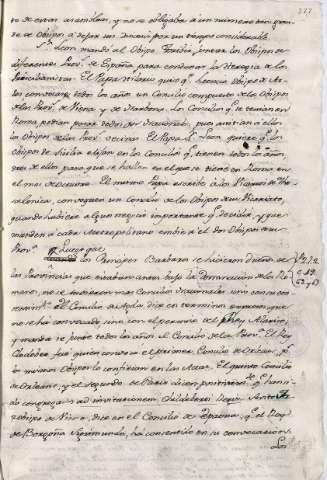 227
to de estar arendidas, y no se obligaba á un numero tan gran-
de de Obispos á dejar sus Diocesis por un tiempo considerable.
Sn. Leon mandó al Obispo Toribio, juntar los Obispos de
diferentes Provs. de España para condenar la Heregia de los
Priscilianistas. El Papa Hilario quiso qe. Leoncio Obispo de Ar-
les convocase todos los años un Concilio compuesto de los Obispos
de las Provs. de Viena y de Narbona. Los Concilios qe. se tenian en
Roma podian pasar todos por Nacionales, pues asistian á ellos
los Obispos de las Provs. vecinas. El Papa Sn. Leon quiere qe. los
Obispos de Sicilia elijan en los Concilios qe. tienen todos los años,
tres de ellos para que se hallen en el que se tiene en Roma en
el mes de Octubre. El mismo Papa escribe á los Vicarios de The-
salonica, convoquen un Concilio de los Obispos de su Vicariato,
quando hubiere algun negocio importante qe. decidir, y que
manden á cada Metropolitano embie á él dos Obispos de su
Provª.
Luego que
los Principes Barbaros se hicieron dueños de
las Provincias que estaban antes bajo la Dominacion de los Ro-
manos, no se tubieron mas Concilios Nacionales sino con su con-
sentimto. El Concilio de Agda dice en terminos expresos que
no se há convocado sino con el permiso del Rey Alarico,
y manda se junte todos los años el Concilio de la Prova. El Rey
Clodoveo fue quien convocó el primer Concilio de Orleans, qe.
los mismos Obispos lo confiesan en las Actas. El quinto Concilio
de Orleans, y el segundo de Paris dicen positivamte. qe. han si-
do congregados ad invitationem Childeberti Regis. Avito Ar-
zobispo de Viena, dice en el Concilio de Epaona, qe. el Rey
de Borgoña Sigismundo, há consentido en su convocacion.
Los